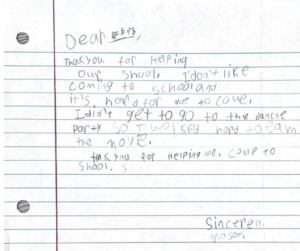 Dear
Thak you for Helping
our shool. I don't like
coming to school and
it's hard for me to come.
I didn't get to go to the dance
party so I worked hard to earn
the move.
thak you for Helping me. come to
Shool. s
Sincerer,
mason.